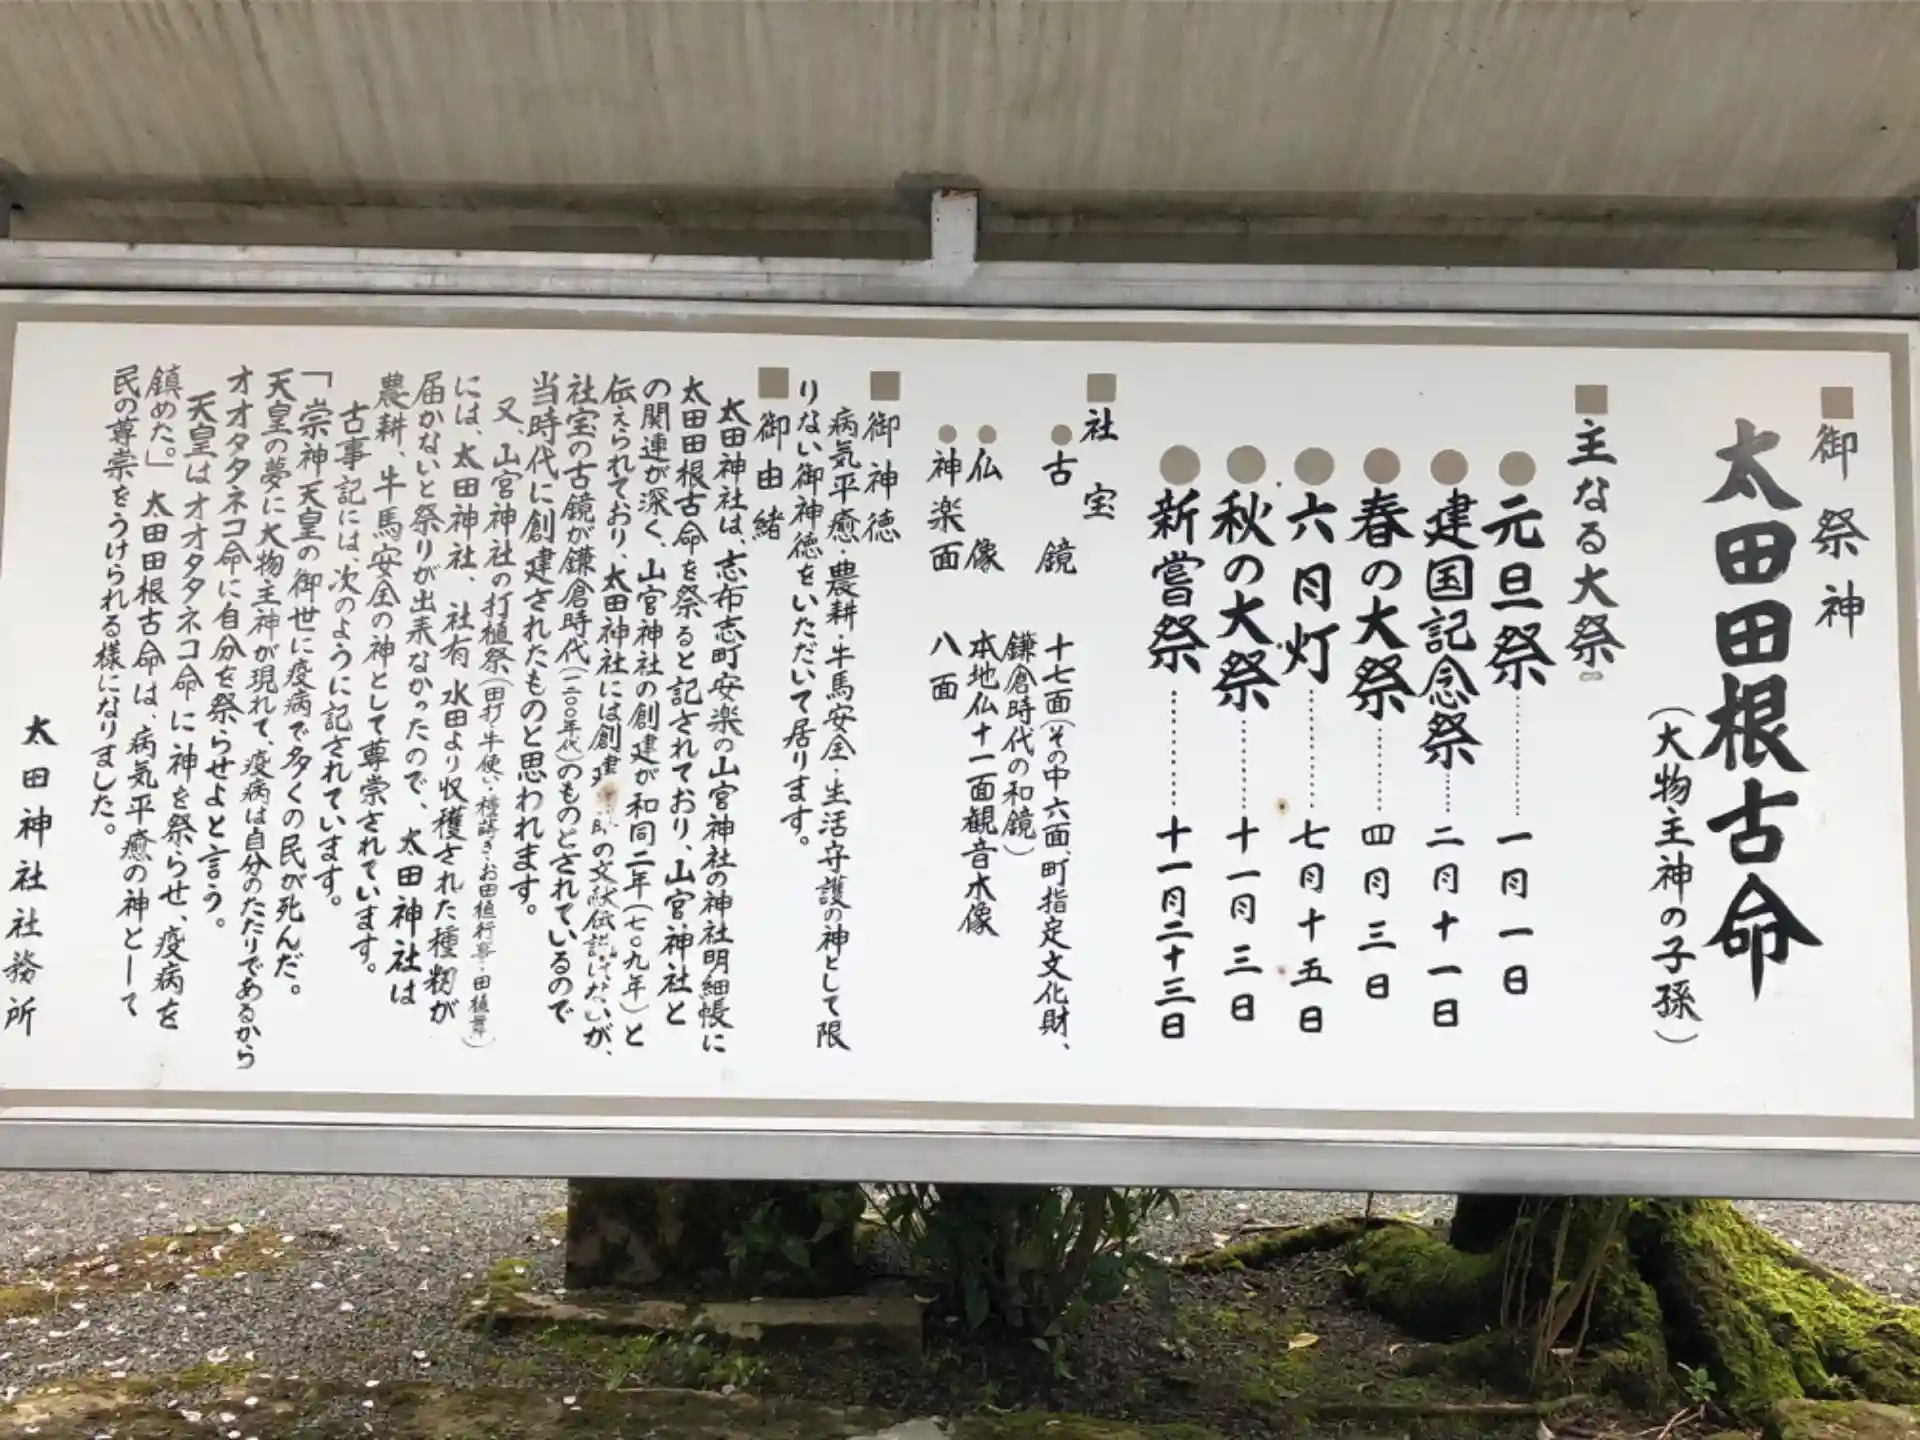 御祭神
太田田根古命
(大物主神の子孫)
主なる大祭
元旦祭………一月一日
建国記念祭……二月十一日
春の大祭……四月三日
六月灯………七月十五日
秋の大祭……十一月三日
新嘗祭………十一月二十三日
社宝
古鏡 十七面(その中六面、町指定文化財、
鎌倉時代の和鏡)
仏像 本地仏十一面観音木像
神楽面 八面
御神徳
病気平癒・農耕・牛馬安全・生活守護の神として限
りない御神徳をいただいて居ります。
御由緒
太田神社は、志布志町安楽の山宮神社の神社明細帳に
太田田根古命を祭ると記されており、山宮神社と
の関連が深く、山宮神社の創建が和同二年(七〇九年)と
伝えられており、太田神社には創建 の文献伝説はないが、
社宝の古鏡が鎌倉時代(一二〇〇年代)のものとされているので
当時代に創建されたものと思われます。
又、山宮神社の打植祭(田打・牛使い・種蒔き・お田植行事・田植舞)
には、太田神社、社有水田より収穫された種籾が
届かないと祭りが出来なかったので、太田神社は
農耕、牛馬安全の神として尊崇されています。
古事記には、次のように記されています。
「崇神天皇の御世に疫病で多くの民が死んだ。
天皇の夢に大物主神が現れて、疫病は自分のたたりであるから
オオタタネコ命に自分を祭らせよと言う。
天皇はオオタタネコ命に神を祭らせ、疫病を
鎮めた。」太田田根古命は、病気平癒の神として
民の尊崇をうけられる様になりました。
太田神社社務所